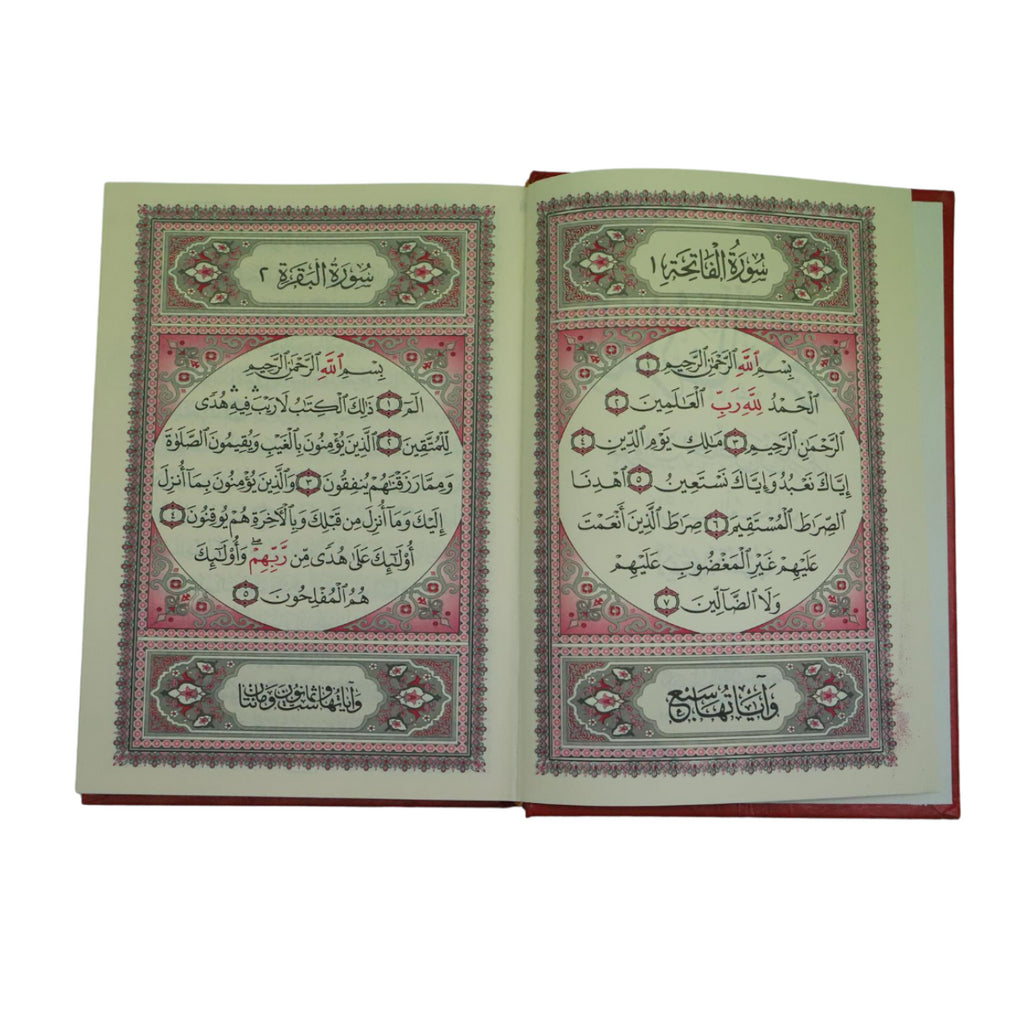 سُورَةُ الْفَاتِحَةِ ١
بِسْمِ ٱللَّهِ ٱلرَّحْمَٰنِ ٱلرَّحِيمِ ١
ٱلْحَمْدُ لِلَّهِ رَبِّ ٱلْعَالَمِينَ ٢
ٱلرَّحْمَٰنِ ٱلرَّحِيمِ ٣ مَالِكِ يَوْمِ ٱلدِّينِ ٤
إِيَّاكَ نَعْبُدُ وَإِيَّاكَ نَسْتَعِينُ ٥ ٱهْدِنَا
ٱلصِّرَاطَ ٱلْمُسْتَقِيمَ ٦ صِرَاطَ ٱلَّذِينَ أَنْعَمْتَ
عَلَيْهِمْ غَيْرِ ٱلْمَغْضُوبِ عَلَيْهِمْ
وَلَا ٱلضَّآلِّينَ ٧
وَآيَاتُهَا سَبْعٌ
سُورَةُ الْبَقَرَةِ ٢
بِسْمِ ٱللَّهِ ٱلرَّحْمَٰنِ ٱلرَّحِيمِ
الٓمٓ ١ ذَٰلِكَ ٱلْكِتَٰبُ لَا رَيْبَ ۛ فِيهِ ۛ هُدًى
لِّلْمُتَّقِينَ ٢ ٱلَّذِينَ يُؤْمِنُونَ بِٱلْغَيْبِ وَيُقِيمُونَ ٱلصَّلَوٰةَ
وَمِمَّا رَزَقْنَٰهُمْ يُنفِقُونَ ٣ وَٱلَّذِينَ يُؤْمِنُونَ بِمَآ أُنزِلَ
إِلَيْكَ وَمَآ أُنزِلَ مِن قَبْلِكَ وَبِٱلْآخِرَةِ هُمْ يُوقِنُونَ ٤
أُو۟لَٰٓئِكَ عَلَىٰ هُدًى مِّن رَّبِّهِمْ ۖ وَأُو۟لَٰٓئِكَ
هُمُ ٱلْمُفْلِحُونَ ٥
وَآيَاتُهَا سِتٌّ وَثَمَانُونَ وَمِئَتَانِ